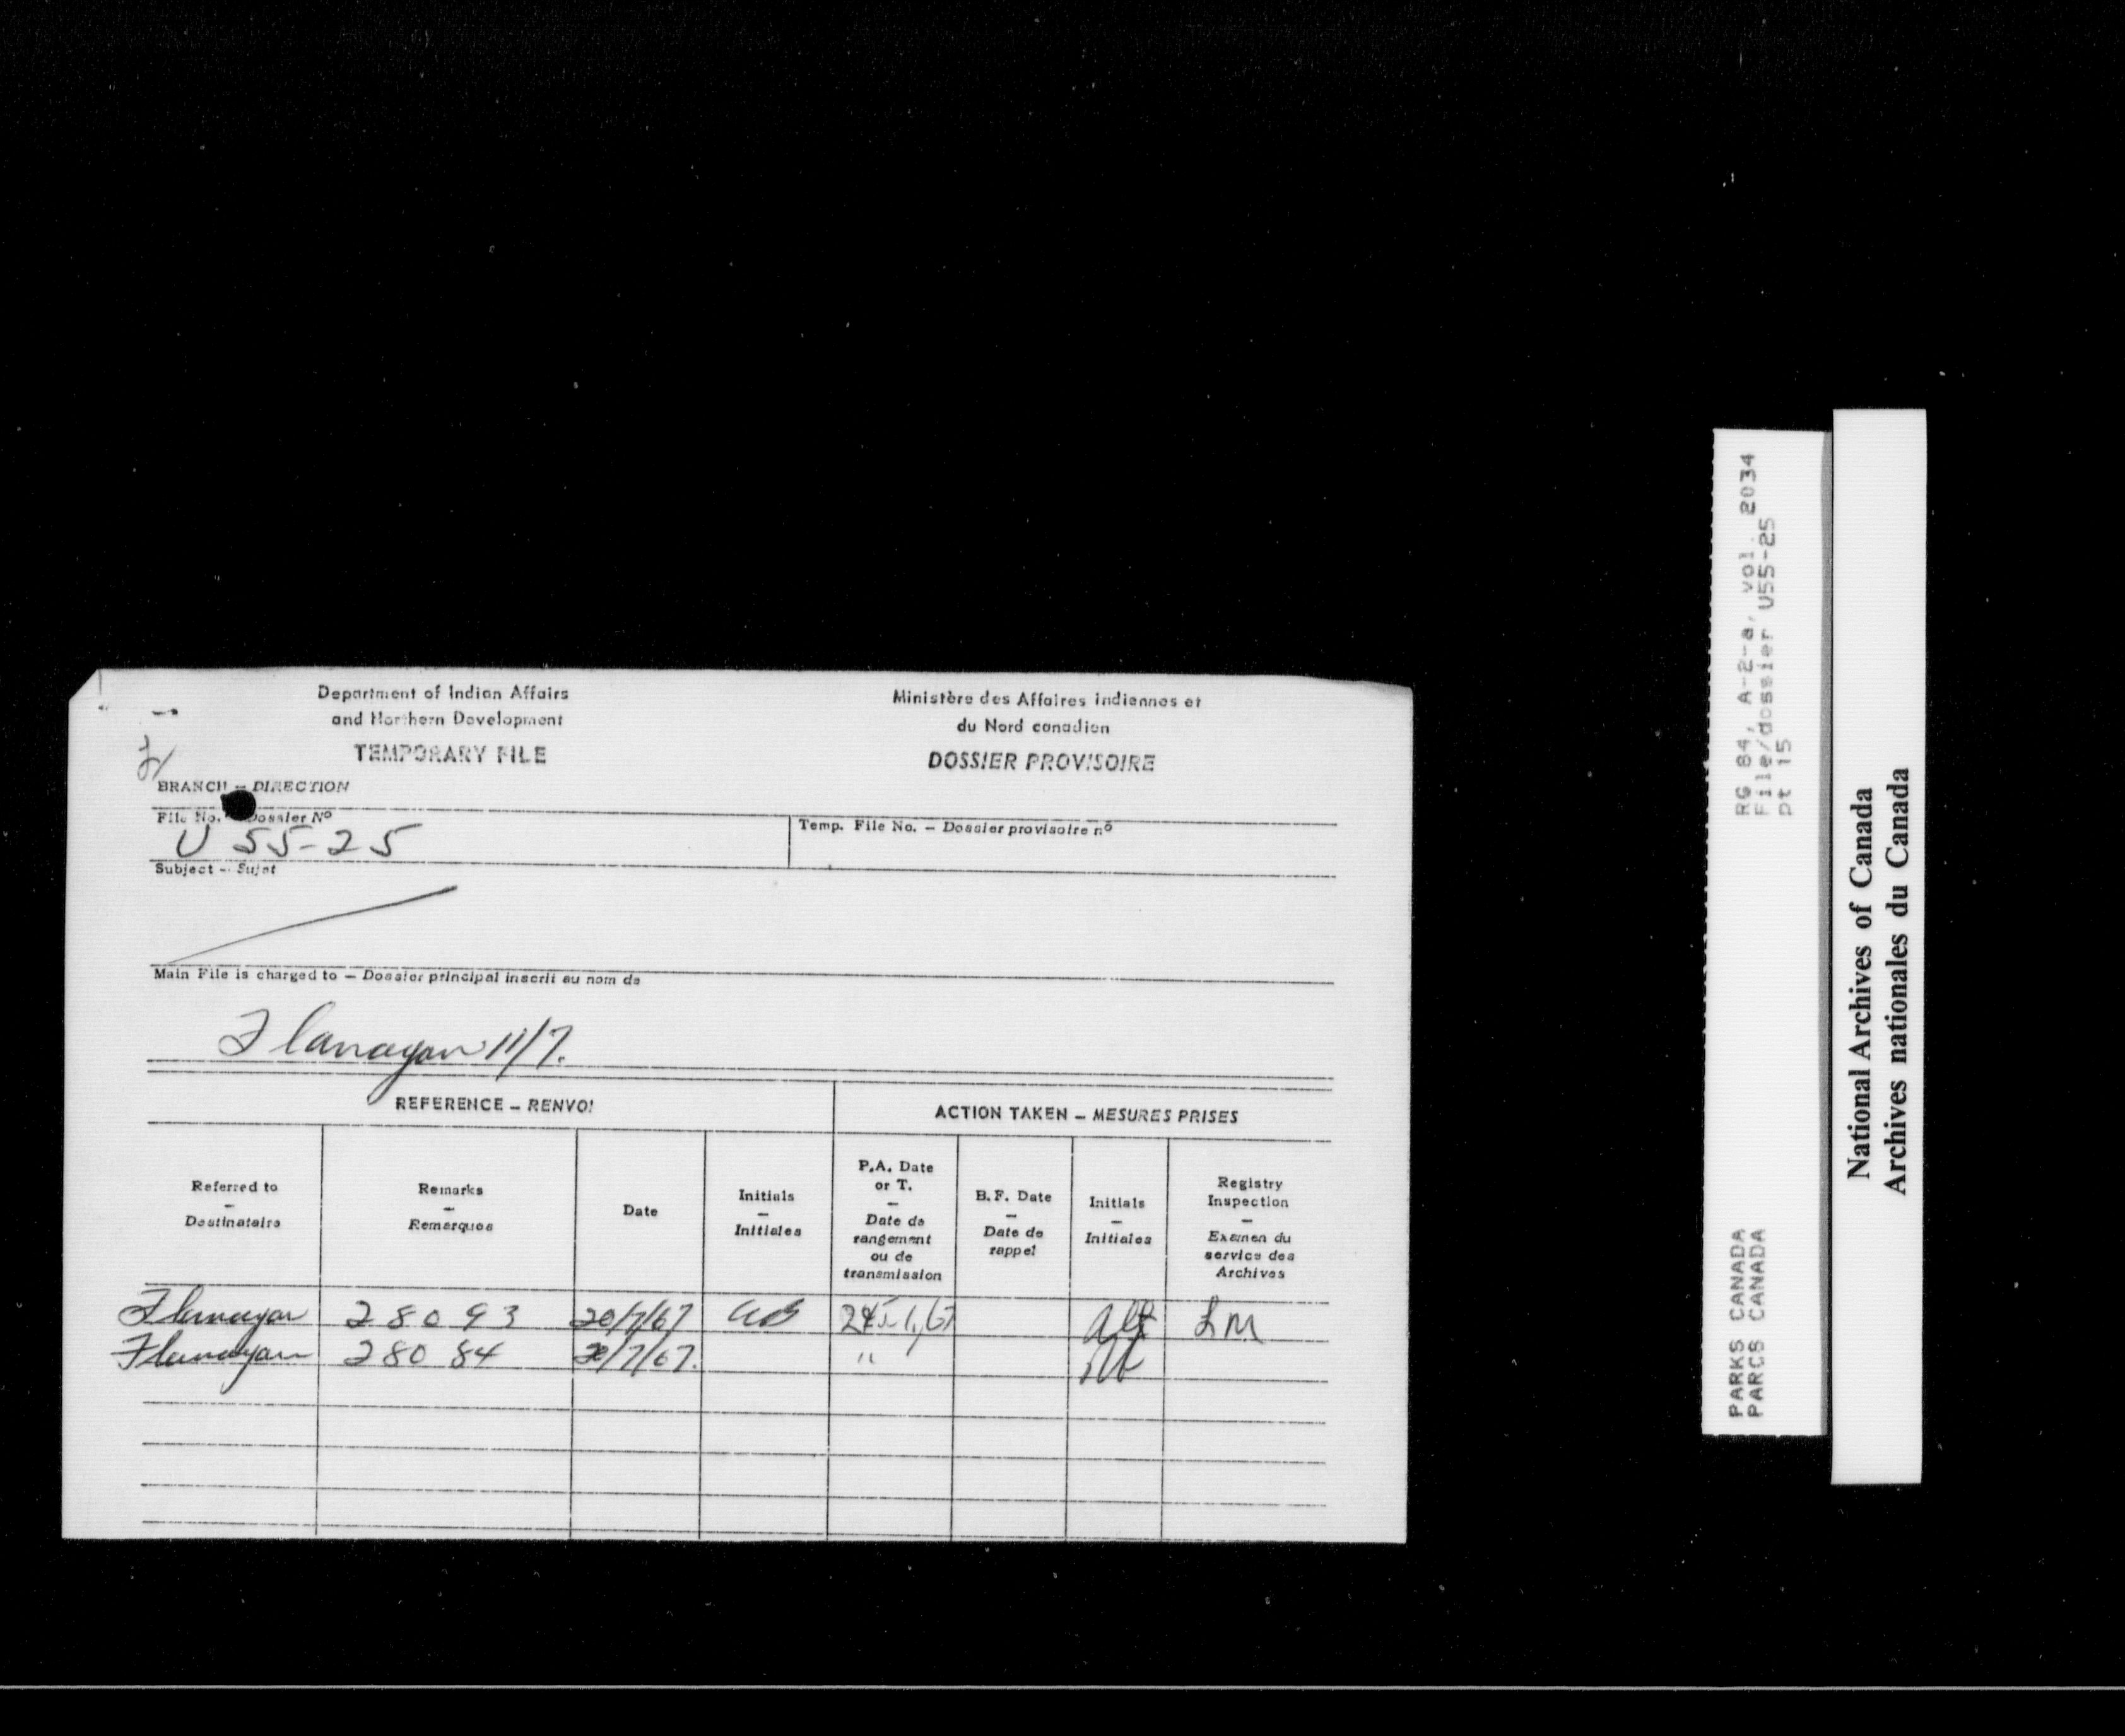 Department of Indian Affairs
and Northern Development
TEMPORARY FILE
Ministère des Affaires indiennes et
du Nord canadien
DOSSIER PROVISOIRE
BRANCH – DIRECTION
File No. Dossier Nº
U 55-25
Temp. File No. – Dossier provisoire nº
Subject – Sujet
Main File is charged to – Dossier principal inscrit au nom de
Flanagan 11/7.
REFERENCE – RENVOI
ACTION TAKEN – MESURES PRISES
Referred to
–
Destinataire
Remarks
–
Remarques
Date
Initials
–
Initiales
P.A. Date
or T.
–
Date de
rangement
ou de
transmission
B.F. Date
–
Date de
rappel
Initials
–
Initiales
Registry
Inspection
–
Examen du
service des
Archives
Flanagan 28093 20/7/67 LM
Flanagan 28084 20/7/67. "
RG 84, A-2-a, vol. 2034
File/dossier U55-25
pt 15
PARKS CANADA
PARCS CANADA
National Archives of Canada
Archives nationales du Canada